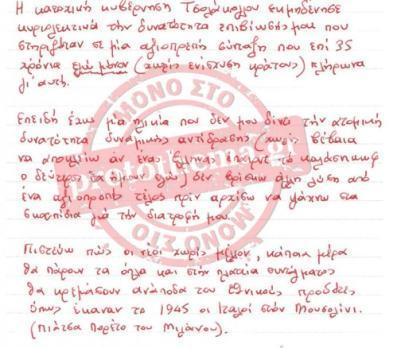 Η κατοχική κυβέρνηση Τσολάκογλου εκμηδένησε
κυριολεκτικά την δυνατότητα επιβίωσής μου που
στηριζόταν σε μία αξιοπρεπή σύνταξη που επί 35
χρόνια εγώ μόνον (χωρίς ενίσχυση κράτους) πλήρωνα
γι' αυτή.
Επειδή έχω μία ηλικία που δεν μου δίνει την ατομική
δυνατότητα δυναμικής αντίδρασης (χωρίς βέβαια
να αποκλείω αν ένας Έλληνας άρπαζε το καλάσνικωφ
ο δεύτερος θα ήμουν εγώ) δεν βρίσκω άλλη λύση από
ένα αξιοπρεπές τέλος πριν αρχίσω να ψάχνω στα
σκουπίδια για την διατροφή μου.
Πιστεύω πως οι νέοι χωρίς μέλλον, κάποια μέρα
θα πάρουν τα όπλα και στην πλατεία συντάγματος
θα κρεμάσουν ανάποδα τους εθνικούς προδότες
όπως έκαναν το 1945 οι Ιταλοί στον Μουσολίνι.
(Πιάτσα Πορέτο του Μιλάνου).
ΜΟΝΟ ΣΤΟ
protothema.gr
ΜΟΝΟ ΣΤΟ